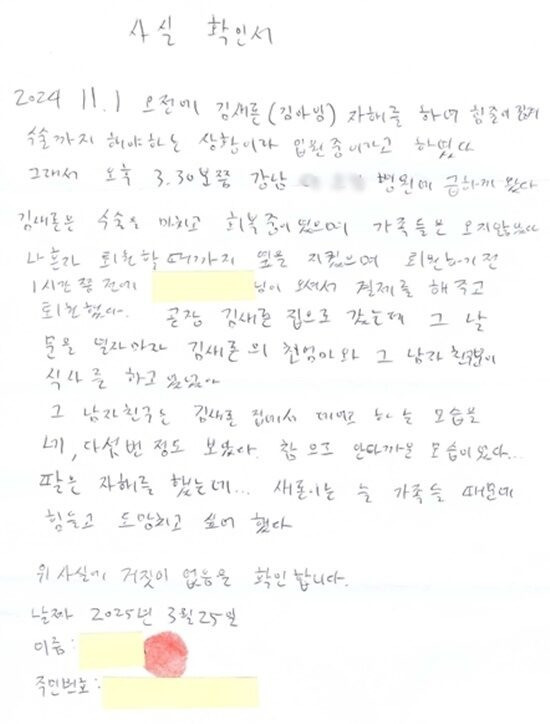 사실 확인서
2024 11.1 오전에 김새론(김아임) 자해를 하여 힘줄이
수술까지 해야하는 상황이라 입원중이라고 하였다
그래서 오후 3.30분쯤 강남 병원에 급하게 갔다
김새론은 수술을 마치고 회복중이였으며 가족들은 오지않았다
나혼자 퇴원할때까지 옆을 지켰으며 퇴원하기전
1시간 쯤 전에 님이 오셔서 결제를 해주고
퇴원했다. 곧장 김새론 집으로 갔는데 그 날
문을 열자마자 김새론의 친엄마와 그 남자친구분이
식사를 하고 있었다
그 남자친구는 김새론 집에서 하는 모습을
네, 다섯번 정도 보았다. 참으로 안타까운 모습이였다...
딸은 자해를 했는데... 새론이는 늘 가족들 때문에
힘들고 도망치고 싶어 했다
위 사실에 거짓이 없음을 확인합니다.
날짜 2025년 3월 25일
이름:
주민번호: